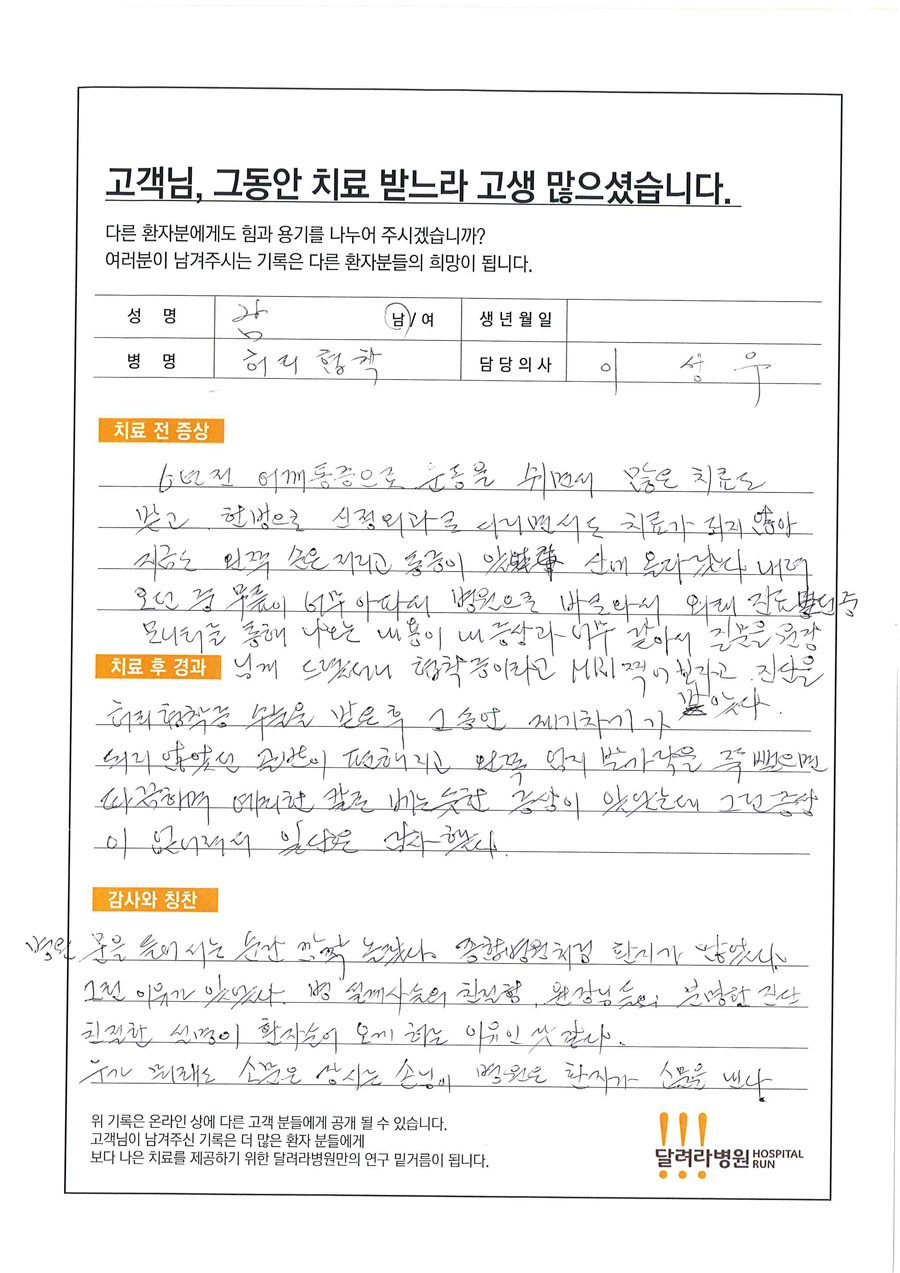 고객님, 그동안 치료 받느라 고생 많으셨습니다.
다른 환자분에게도 힘과 용기를 나누어 주시겠습니까?
여러분이 남겨주시는 기록은 다른 환자분들의 희망이 됩니다.
성 명 남/여 생년월일
병 명 허리 협착 담당의사 이 성 우
치료 전 증상
6년전 어깨통증으로 운동을 쉬면서 많은 치료도
받고 한방으로 신경외과로 다니면서도 치료가 되지 않아
지금도 왼쪽 손은 저리고 통증이 있 산에 올라갔다 내려
오던 중 무릎이 너무 아파서 병원으로 바로와서 외래 진료 중
모니터를 통해 나오는 내용이 내 증상과 너무 같아서 질문을 원장
치료 후 경과
님께 드렸더니 협착증이라고 MRI 찍어보자고. 진단을
받았다.
허리협착증 수술을 받은후 그 동안 제기차기가
되지 않았던 골반이 편해지고 왼쪽 엄지 발가락을 쭉 뻗으면
따끔하며 예리한 칼로 베는듯한 증상이 있었는데 그런증상
이 없어져서 일단은 감사했다.
감사와 칭찬
병원 문을 들어 서는 순간 깜짝 놀랐다. 종합병원처럼 환자가 많았다.
그런 이유가 있었다. 친절함, 원장님들의 분명한 진단
친절한 설명이 환자들이 오게 하는 이유인 것 같다.
누가 뭐래도 소문은 손님이 병원은 환자가 소문을 낸다
위 기록은 온라인 상에 다른 고객 분들에게 공개 될 수 있습니다.
고객님이 남겨주신 기록은 더 많은 환자 분들에게
보다 나은 치료를 제공하기 위한 달려라병원만의 연구 밑거름이 됩니다.
달려라병원 HOSPITAL RUN